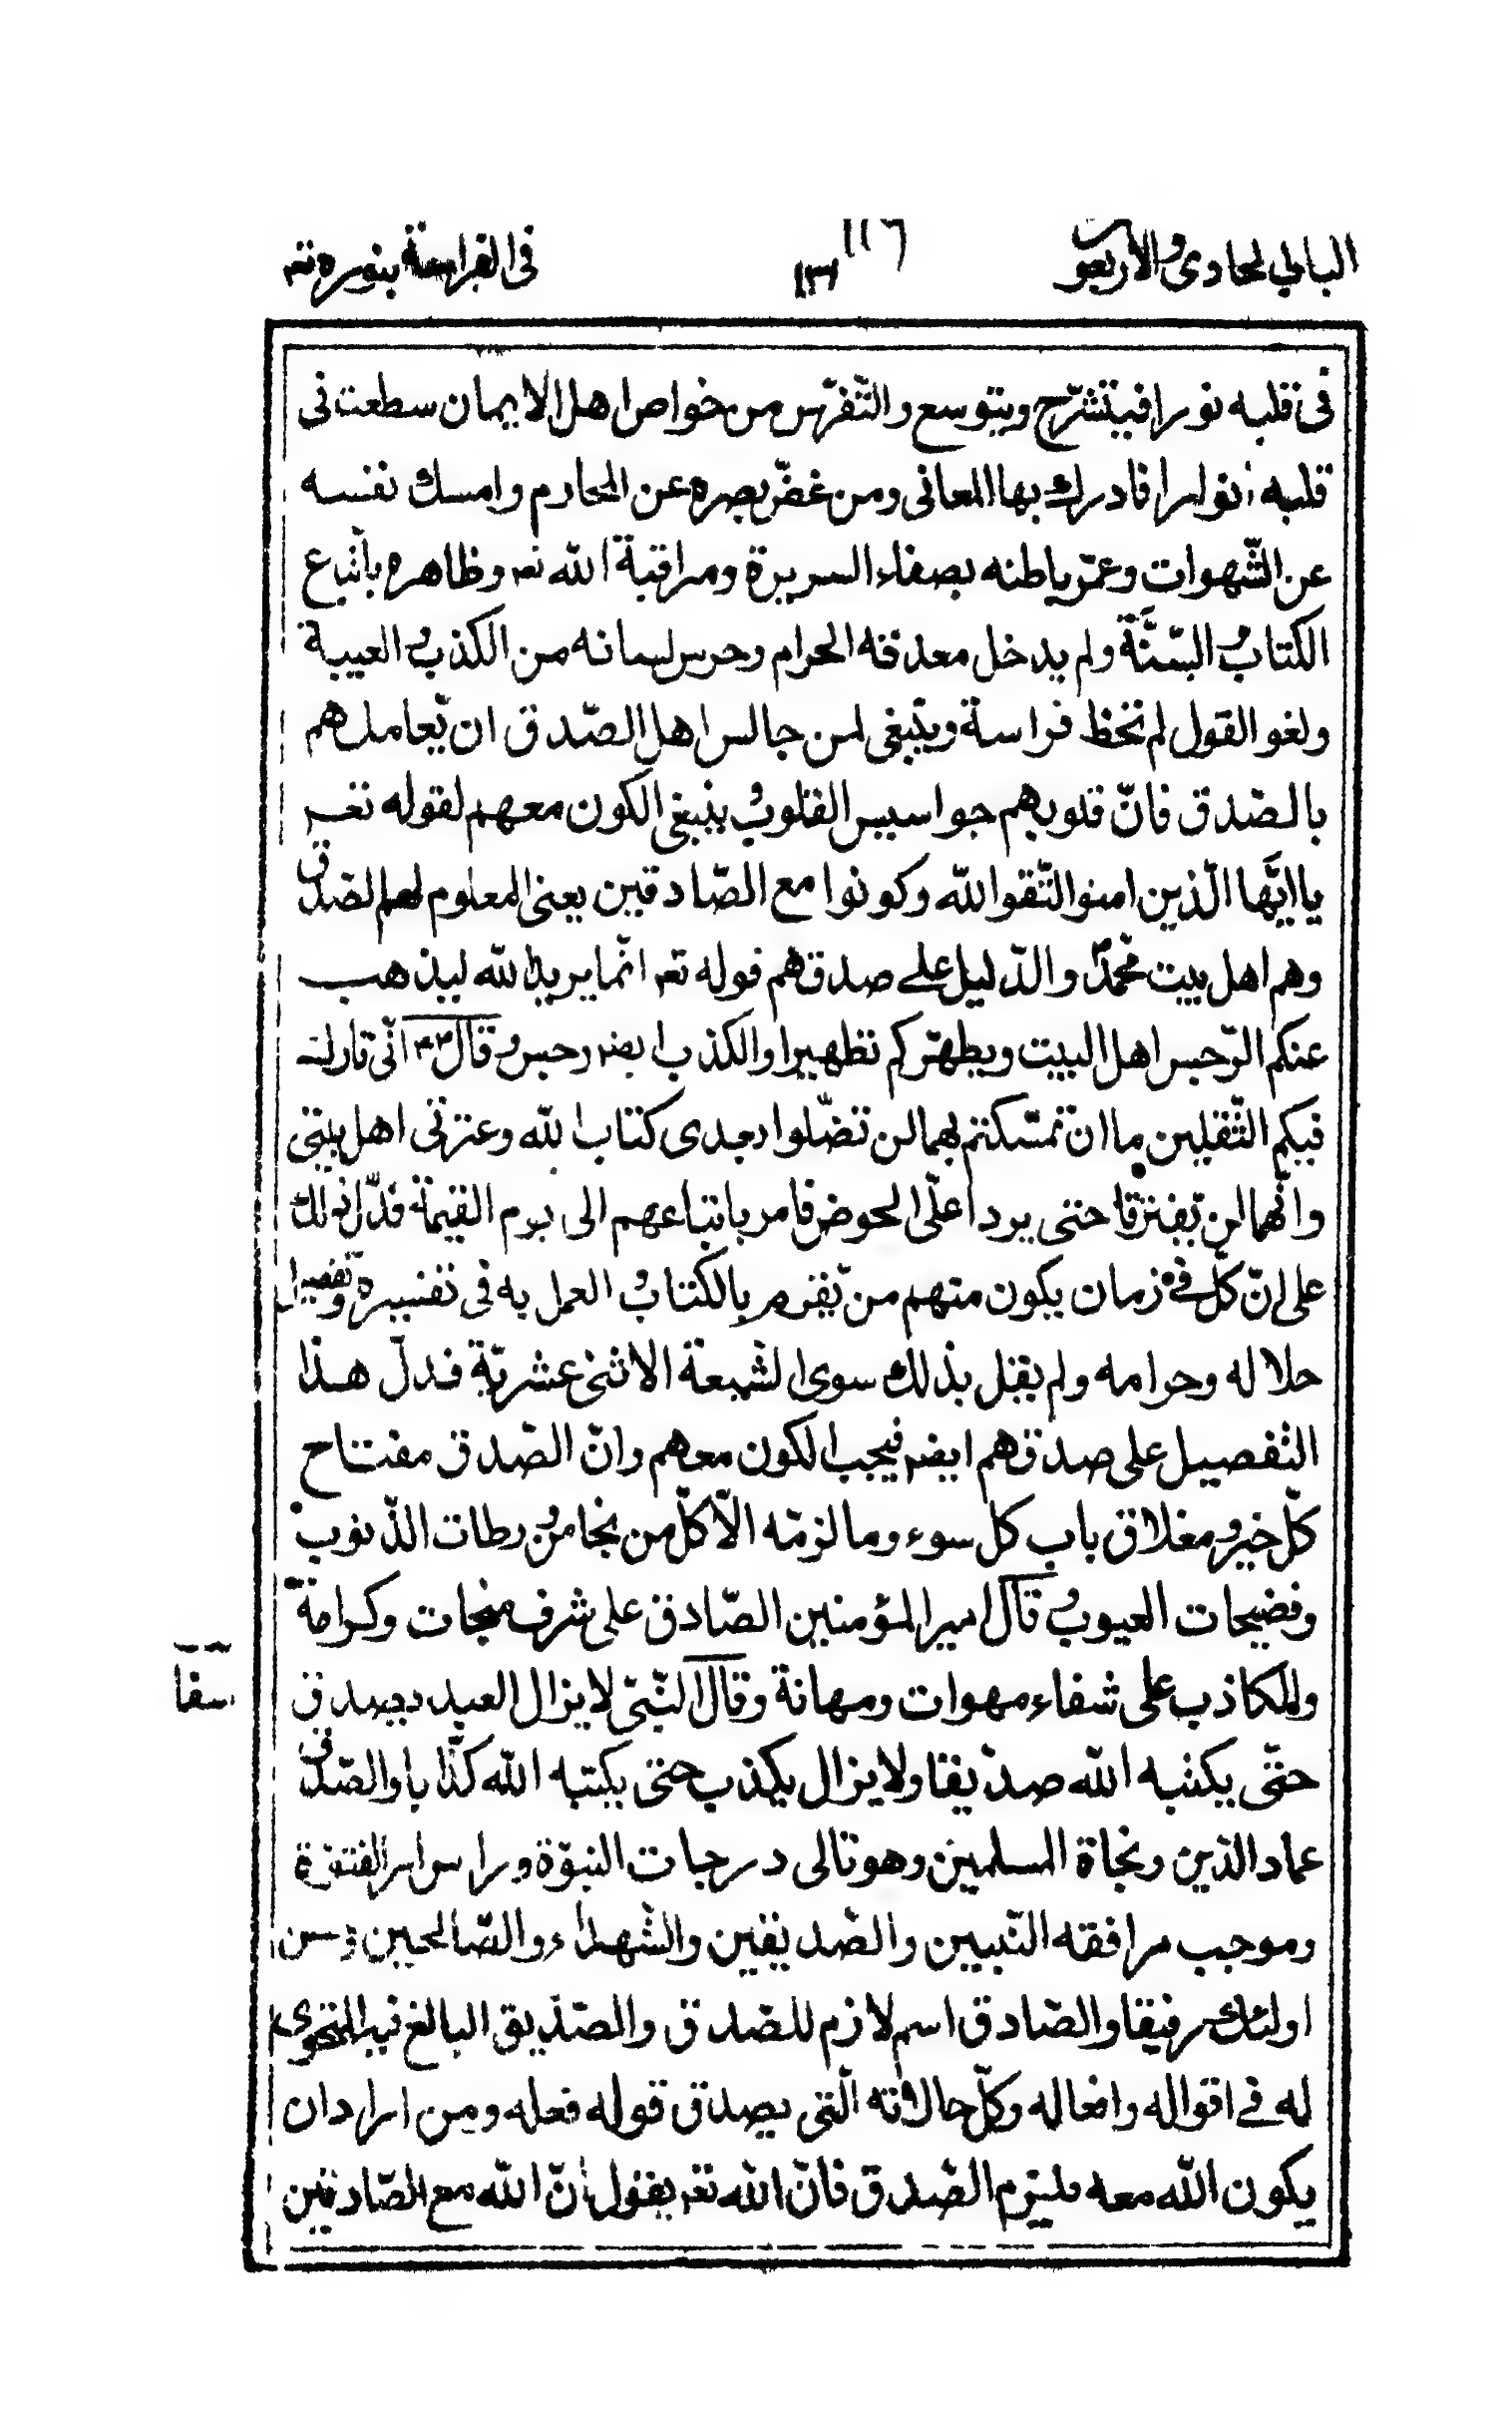 الباب الحادى والأربعون ١١٦ ١٣١ فى الفراسة بنوره تعـ
فى قلبه نورا فيتشرّح ويتوسع والتّفرّس من خواص اهل الايمان سطعت فى
قلبه انوارا فادرك بها المعانى ومن غضّ بصره عن المحارم وامسك نفسه
عن الشّهوات وعمّر باطنه بصفاء السريرة ومراقبة الله تعـ وظاهره باتّباع
الكتاب والسّنّة ولم يدخل معدته الحرام وحرس لسانه من الكذب والغيبة
ولغو القول لم تخظ فراسة وينبغى لمن جالس اهل الصّدق ان يّعاملهم
بالصّدق فانّ قلوبهم جواسيس القلوب وينبغى الكون معهم لقوله تعـ
يا ايّها الّذين امنوا اتّقوا الله وكونوا مع الصّادقين يعنى المعلوم لهم الصّدق
وهم اهل بيت محمّد والدّليل على صدقهم قوله تعـ انّما يريد الله ليذهب
عنكم الرّجس اهل البيت ويطهّركم تطهيرا والكذب ايضـ رجس وقال انّى تارك
فيكم الثّقلين ما ان تمسّكتم بهما لن تضّلوا بعدى كتاب الله وعترتى اهل بيتى
وانّهما لن يّفترقا حتى يردا علىّ الحوض فامر باتباعهم الى يوم القيمة فدّل ذلك
على انّ كلّ فى زمان يكون منهم من يّقوم بالكتاب والعمل به فى تفسيره وتفصيل
حلاله وحرامه ولم يقل بذلك سوى الشّيعة الاثنى عشريّة فدلّ هذا
التفصيل على صدقهم ايضـ فيجب الكون معهم وانّ الصّدق مفتاح
كلّ خير ومغلاق باب كل سوء وما لزمه الّا كلّ من نجا من ورطات الذّنوب
وفضيحات العيوب وقال امير المؤمنين الصّادق على شرف منجات وكرامة
والكاذب على شفاء مهوات ومهانة وقال النّبىّ لا يزال العبد يصدق
حتّى يكتبه الله صدّيقا ولا يزال يكذب حتى يكتبه الله كذّابا والصّدق
عماد الدّين ونجاة المسلمين وهو تالى درجات النبوّة وراس
وموجب مرافقه النّبيين والصّديقين والشّهداء والصّالحين وحسن
اولئك رفيقا والصّادق اسم لازم للصّدق والصّدّيق البالغ فيه المتحرى
له فى اقواله وافعاله وكلّ حالاته الّتى يصدق قوله فعله ومن اراد ان
يكون الله معه فليتزم الصّدق فانّ الله تعـ يقول انّ الله مع الصّادقين